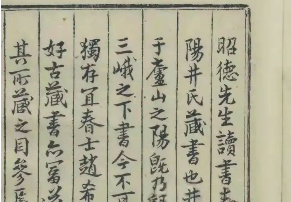 昭德先生讀書志
陽井氏藏書也井
于廬山之陽旣乃
三峨之下書今不可
獨存冝春士趙希
好古藏書亦富
其所藏之目參